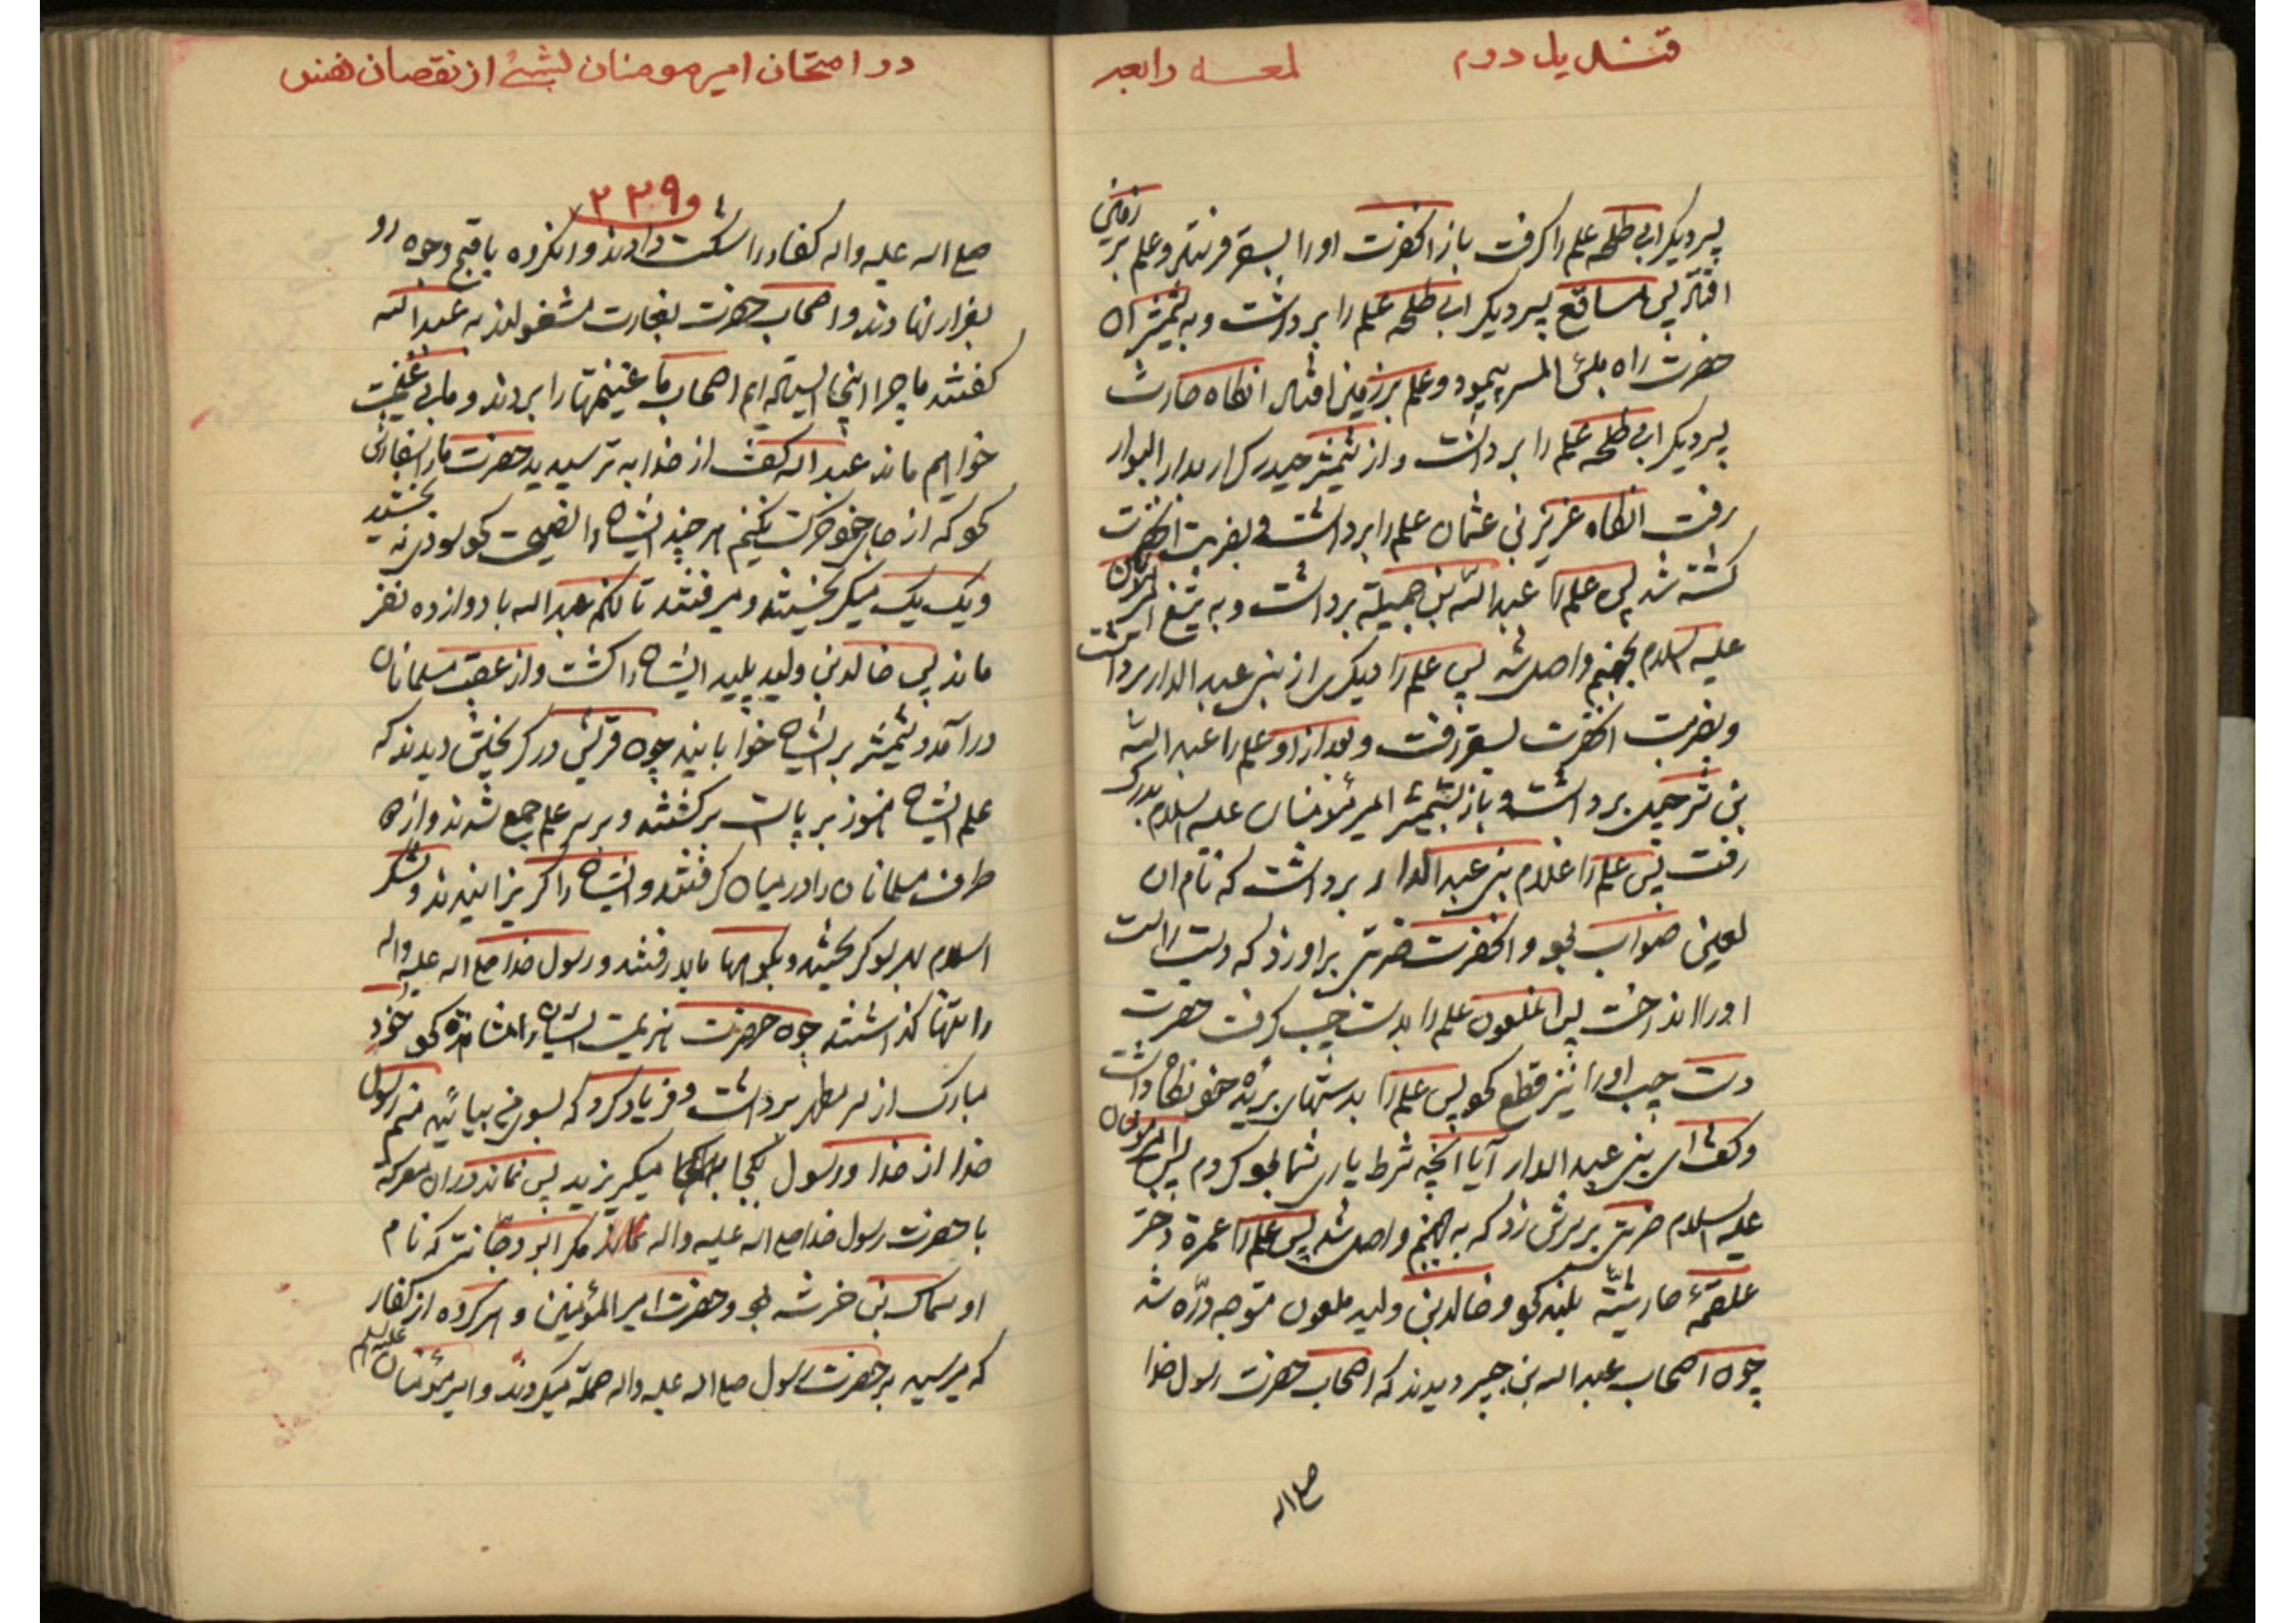 قندیل دوم
لمعه رابعه
پسر دیگر ابی طلحه علم را گرفت باز انحضرت اورا بسقر فرستاد و علم بر زمین
افتاد پس مسافع پسر دیگر ابی طلحه علم را برداشت و به شمشیر ان
حضرت راه بئس المصیر پیمود و علم بر زمین افتاد انگاه حارث
پسر دیگر ابی طلحه علم را برداشت و از شمشیر حیدر کرار بدار البوار
رفت انگاه عزیز بن عثمان علم را برداشت و بضربت انحضرت
کشته شد پس علم را عبد الله بن جمیله برداشت و به تیغ امیر مؤمنان
علیه السلام بجهنم واصل شد پس علم را دیگری از بنی عبد الدار برداشت
و بضربت انحضرت بسقر رفت و بعد از او علم را عبد الله
بن شرحبیل برداشت و باز بشمشیر امیر مؤمنان علیه السلام بدرک
رفت پس علم را غلام بنی عبد الدار برداشت که نام ان
لعین صواب بود و انحضرت ضربتی براو زد که دست راست
اورا انداخت پس انملعون علم را بدست چپ گرفت حضرت
دست چپ اورا نیز قطع کرد پس علم را بدستهای بریده خود نگاه داشت
و گفت ای بنی عبد الدار آیا انچه شرط یاری شما بود کردم پس امیر مؤمنان
علیه السلام ضربتی بر سرش زد که به جهنم واصل شد پس علم را عمرة دختر
علقمهٔ حارثیّه بلند کرد و خالد بن ولید ملعون متوجه درّه شد
چون اصحاب عبد اله بن جبیر دیدند که اصحاب حضرت رسول خدا
صلی اله
در امتحان امیر مومنان بشیٔ از نقصان نفس
و ۲۳۹
صلی اله علیه و اله کفار را شکست دادند و انگروه باقبح وجوه رو
بفرار نهادند و اصحاب حضرت بغارت مشغولند به عبد الله
گفتند ما چرا اینجا ایستاده ایم اصحاب ما غنیمتها را بردند و ما بی غنیمت
خواهیم ماند عبد اله گفت از خدا به ترسید حضرت ما را سفارش
کرد که از جای خود حرکت نکنیم هر چند ایشان را نصیحت کرد سودی نه بخشید
و یک یک میگریختند و میرفتند تا انکه عبد اله با دوازده نفر
ماند پس خالد بن ولید پلید ایشان را کشت و از عقب مسلمانان
در آمد و شمشیر بر ایشان خوابانید چون قریش در گریختن دیدند که
علم ایشان هنوز بر پاست برگشتند و بر سر علم جمع شدند و از هر
طرف مسلمانان را در میان گرفتند و ایشان را گریزانیدند و لشکر
اسلام رو گریختند و بکوهها بالا رفتند و رسول خدا صلی اله علیه و اله
را تنها گذاشتند چون حضرت هزیمت ایشان را مشاهده کرد خود
مبارک از سر مطهر برداشت و فریاد کرد که بسوی من بیائید منم رسول
خدا از خدا و رسول بکجا میگریزید پس نماند در ان معرکه
با حضرت رسول خدا صلی اله علیه و اله مگر ابو دجانه که نام
او سماک بن خرشه بود و حضرت امیر المؤمنین و هر گروه از کفار
که میرسید بر حضرت رسول صلی اله علیه و اله حمله میکردند و امیر مؤمنان علیه السلام